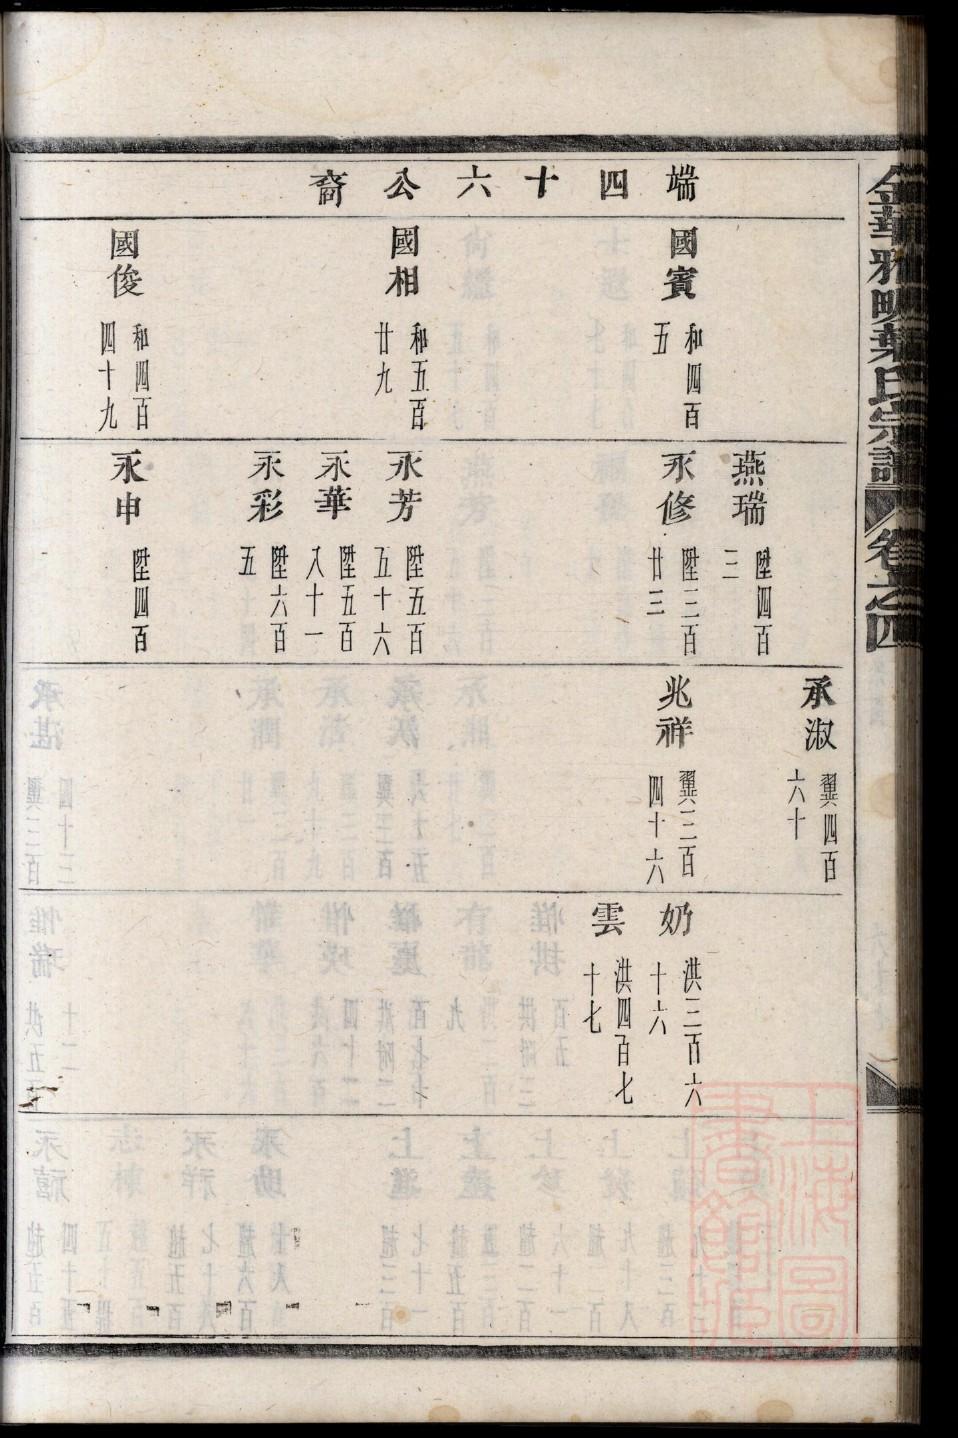 金華雅畈葉氏宗譜 卷之四
端四十六公裔
國賓 和四百五
國相 和五百廿九
國俊 和四百四十九
燕瑞 陞四百三
永修 陞三百廿三
永芳 陞五百五十六
永華 陞五百八十一
永彩 陞六百五
永申 陞四百
承淑 翼四百六十
兆祥 翼三百四十六
奶 洪三百六十六
雲 洪四百七十七
上海圖書館藏